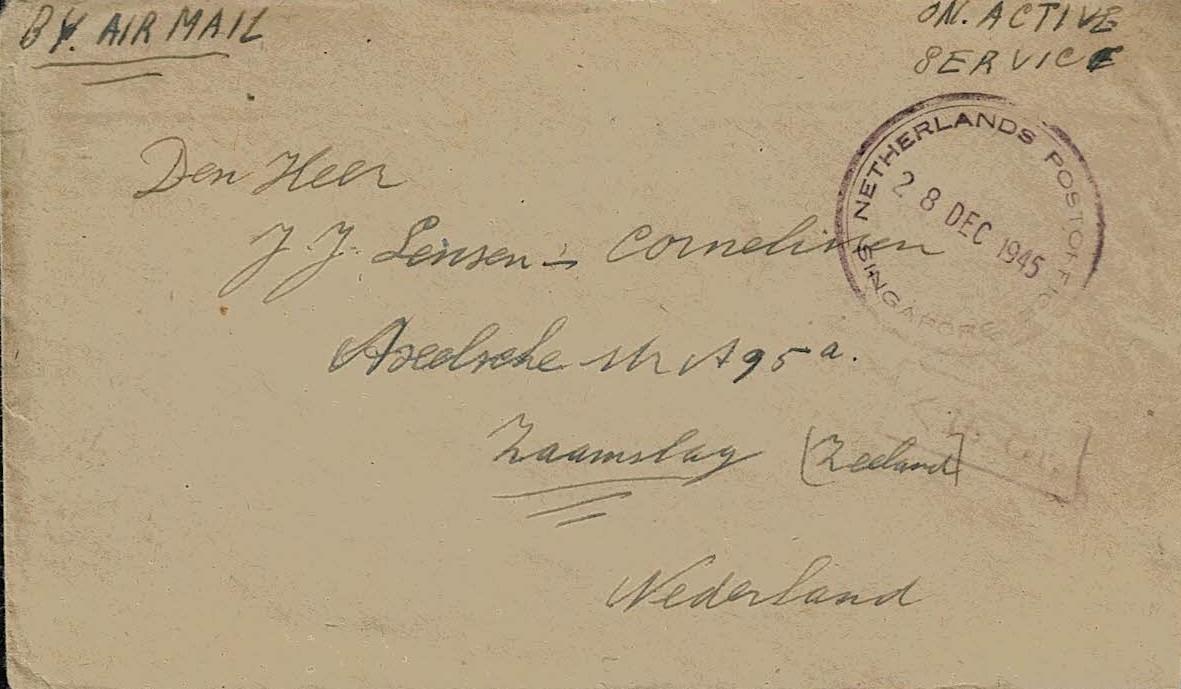 BY. AIR MAIL
ON. ACTIVE
SERVICE
NETHERLANDS POSTOFFICE
28 DEC 1945
SINGAPORE
Den Heer
J. J. Leinsen - Cornelissen
Axelsche str A 95 a.
Zaamslag (Zeeland)
Nederland